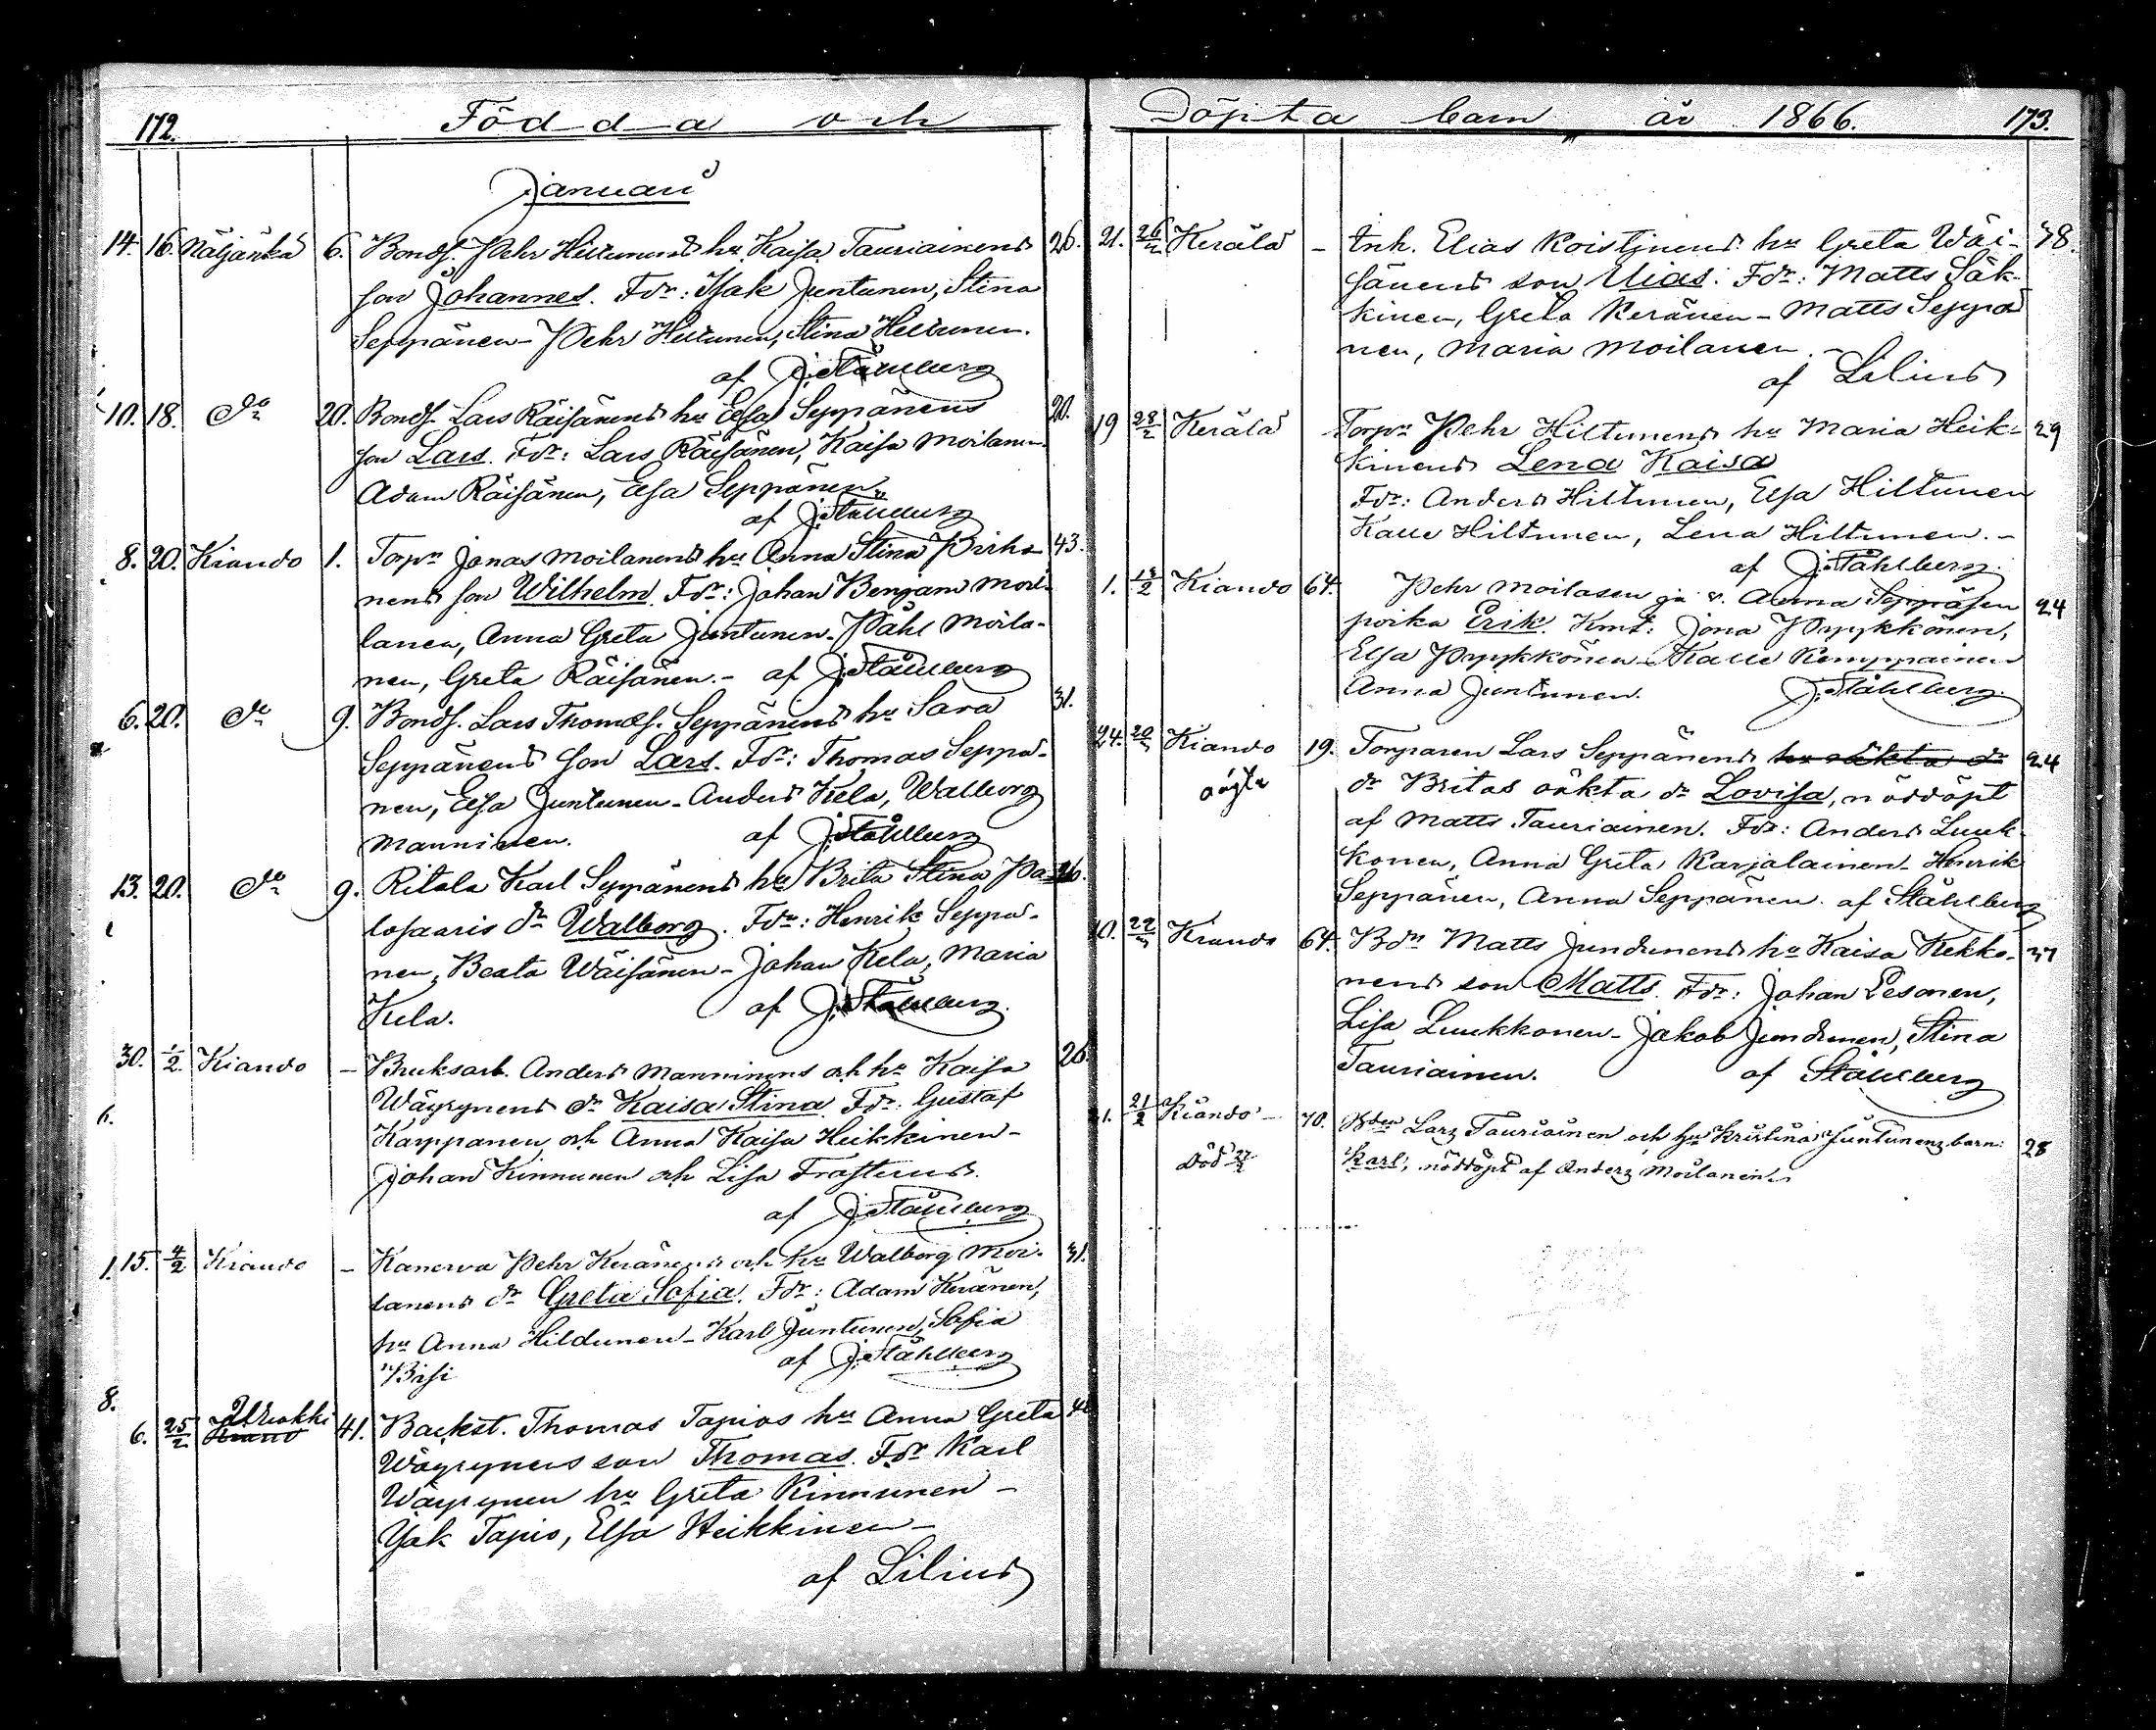 172. Födda och
Januari
14. 16. Näljänkä 6. Bondes. Pehr Hiltunens hu Kaisa Tauriainens 26.
son Johannes. Fdr: Isak Juntunen, Stina
Seppänen - Pehr Hiltunen, Stina Hiltunen.
af J. Ståhlberg
10. 18. do 20. Bondes. Lars Räisänens hu Elsa Seppänens 20.
son Lars. Fdr: Lars Räisänen, Kaisa Moilanen
Adam Räisänen, Elsa Seppänen
af J. Ståhlberg
8. 20. Kiando 1. Torpn Jonas Moilanens hu Anna Stina Pirho- 43.
nens son Wilhelm. Fdr: Johan Benjam Moi-
lanen, Anna Greta Juntunen - Påhl Moila-
nen, Greta Räisänen. - af J. Ståhlberg
6. 20. do 9. Bonds. Lars Thomæs. Seppänens hu Sara 31.
Seppänens son Lars. Fdr: Thomas Seppä-
nen, Elsa Juntunen - Anders Kela, Walborg
Manninen. af J. Ståhlberg
13. 20. do 9. Ritola Karl Seppänens hu Brita Stina Pa- 26.
losaaris dr Walborg. Fdr: Henrik Seppä-
nen, Beata Wäisänen - Johan Kela, Maria
Kela. af J. Ståhlberg.
30. 1/2 Kiando - Bruksarb. Anders Manninens och hu Kaisa 26
Wäyrynens dr Kaisa Stina. Fdr: Gustaf
Karppanen och Anna Kaisa Heikkinen -
Johan Kinnunen och Lisa Frosterus.
af J. Ståhlberg
15. 4/2 Kiando - Kanerva Pehr Keränens och hu Walborg Moi- 31.
lanens dr Greta Sofia. Fdr: Adam Keränen,
hu Anna Hildunen - Karl Juntunen, Sofia
Bisi af J. Ståhlberg
6. 25/2 Kiando 41. Backst. Thomas Tapios hu Anna Greta
Wäyrynens son Thomas. Fdr Karl
Wäyrynen hu Greta Kinnunen -
Isak Tapio, Elsa Heikkinen -
af Lilius
Döpta barn år 1866. 173.
21. 26/2 Kerälä - Inh. Elias Koistjnens hu Greta Wäi- 38.
sänens son Elias. Fdr: Matts Säk-
kinen, Greta Keränen - Matts Seppä
nen, Maria Moilanen. -
af Lilius
19 28/2 Kerälä Torpn Pehr Hiltunens hu Maria Heik- 29
kinens Lena Kaisa
Fdr: Anders Hiltunen, Elsa Hiltunen
Kalle Hiltunen, Lena Hiltunen. -
af J. Ståhlberg.
1. Kiando 64. Pehr Moilasen ja v. Anna Seppäsen 24
poika Erik. Kmt: Jona Pyykkönen,
Elsa Pyykkönen - Kalle Kemppainen
Anna Juntunen. J. Ståhlberg.
24. 20/2 Kiando 19. Torparen Lars Seppänens hu oäkta dr 24
oägta dr Britas oäkta dr Lovisa, nöddöpt
af Matts Tauriainen. Fdr: Anders Luuk-
konen, Anna Greta Karjalainen - Henrik
Seppänen, Anna Seppänen. af Ståhlberg
10. 22/2 Kiando 64. Bdn Matts Jundunens hu Kaisa Kekko- 37
nens son Matts. Fdr: Johan Pesonen,
Lisa Luukkonen - Jakob Jundunen, Stina
Tauriainen. af Ståhlberg
21/2 Kiando - 70. Bden Lars Tauriainen och hu Kristina Juntunens barn: 28
död 27/2 Karl, nöddöpt af Anders Moilanen